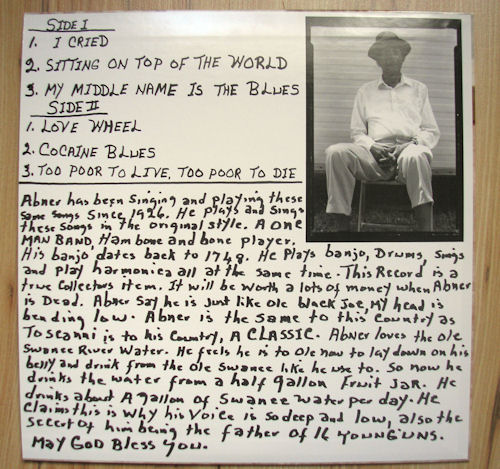 SIDE I
1. I CRIED
2. SITTING ON TOP OF THE WORLD
3. MY MIDDLE NAME IS THE BLUES
SIDE II
1. LOVE WHEEL
2. COCAINE BLUES
3. TOO POOR TO LIVE, TOO POOR TO DIE
Abner has been Singing and playing these
same songs Since 1926. He plays and Sings
these Songs in the original style. A ONE
MAN BAND, Ham bone and bone player.
His banjo dates back to 1748. He Plays banjo, Drums, sings
and play harmonica all at the same time. This Record is a
true Collectors item. It will be worth a lots of money when Abner
is Dead. Abner Say he is Just like Ole black Joe, My head is
bending low. Abner is the same to this Country as
Toscanni is to his Country, A CLASSIC. Abner loves the Ole
Swanee River Water. He feels he is to Ole now to lay down on his
belly and drink from the Ole Swanee like he use to. So now he
drinks the water from a half gallon Fruit Jar. He
drinks about A gallon of Swanee water per day. He
Claims this is why his Voice is so deep and low, also the
secert of him being the father of 16 YOUNGUNS.
May GOD Bless You.